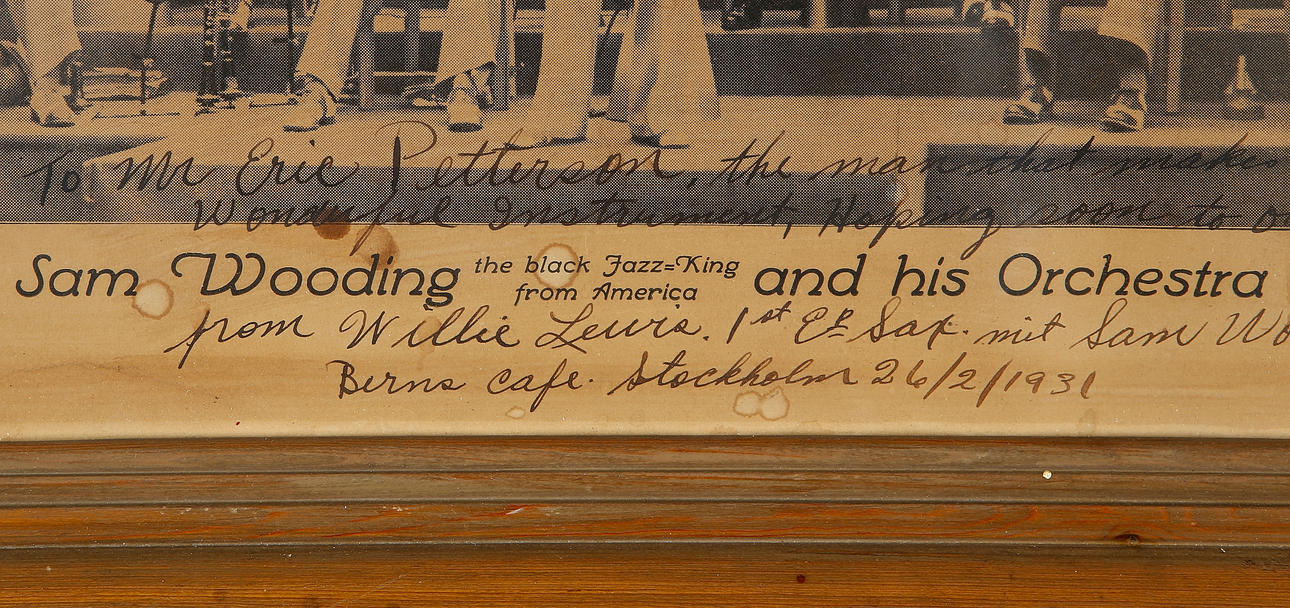 To Mr Eric Petterson, the man that makes
Wonderful Instrument, Hoping soon to
Sam Wooding the black Jazz=King from America and his Orchestra
from Willie Lewis. 1st Eb Sax. mit Sam Wo
Berns cafe. Stockholm 26/2/1931